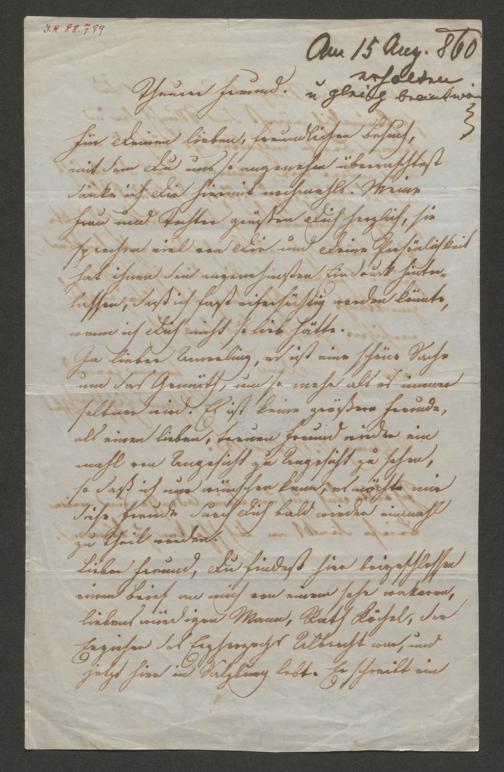 Am 15 Aug. 860
erhalten
u gleich beantwor
Theurer Freund.
Für Deinen lieben, freundlichen Besuch,
mit dem Du uns so angenehm überraschtest
danke ich Dir hiermit nochmahls. Meine
Frau und Tochter grüßen Dich herzlich, sie
sprechen viel von Dir und Deine Persönlichkeit
hat ihnen den angenehmsten Eindruck hinter-
lassen, daß ich fast eifersüchtig werden könnte,
wenn ich Dich nicht so lieb hätte.
Ja lieber, es ist eine schöne Sache
um das Gemüth, um so mehr als es immer
seltner wird. Es ist keine größere Freude,
als einen lieben, treuen Freund wieder ein
mahl von Angesicht zu Angesicht zu sehen,
so daß ich nur wünschen kann, es möchte mir
diese Freude durch Dich bald wieder einmahl
zu Theil werden.
Lieber Freund, Du findest hier beigeschlossen
einen Brief an mich von einem sehr wakeren,
liebenswürdigen Mann, Rath Köchel, der
Erzieher des Erzherzogs Albrecht war, und
jetzt hier in Salzburg lebt. Er schreibt ein